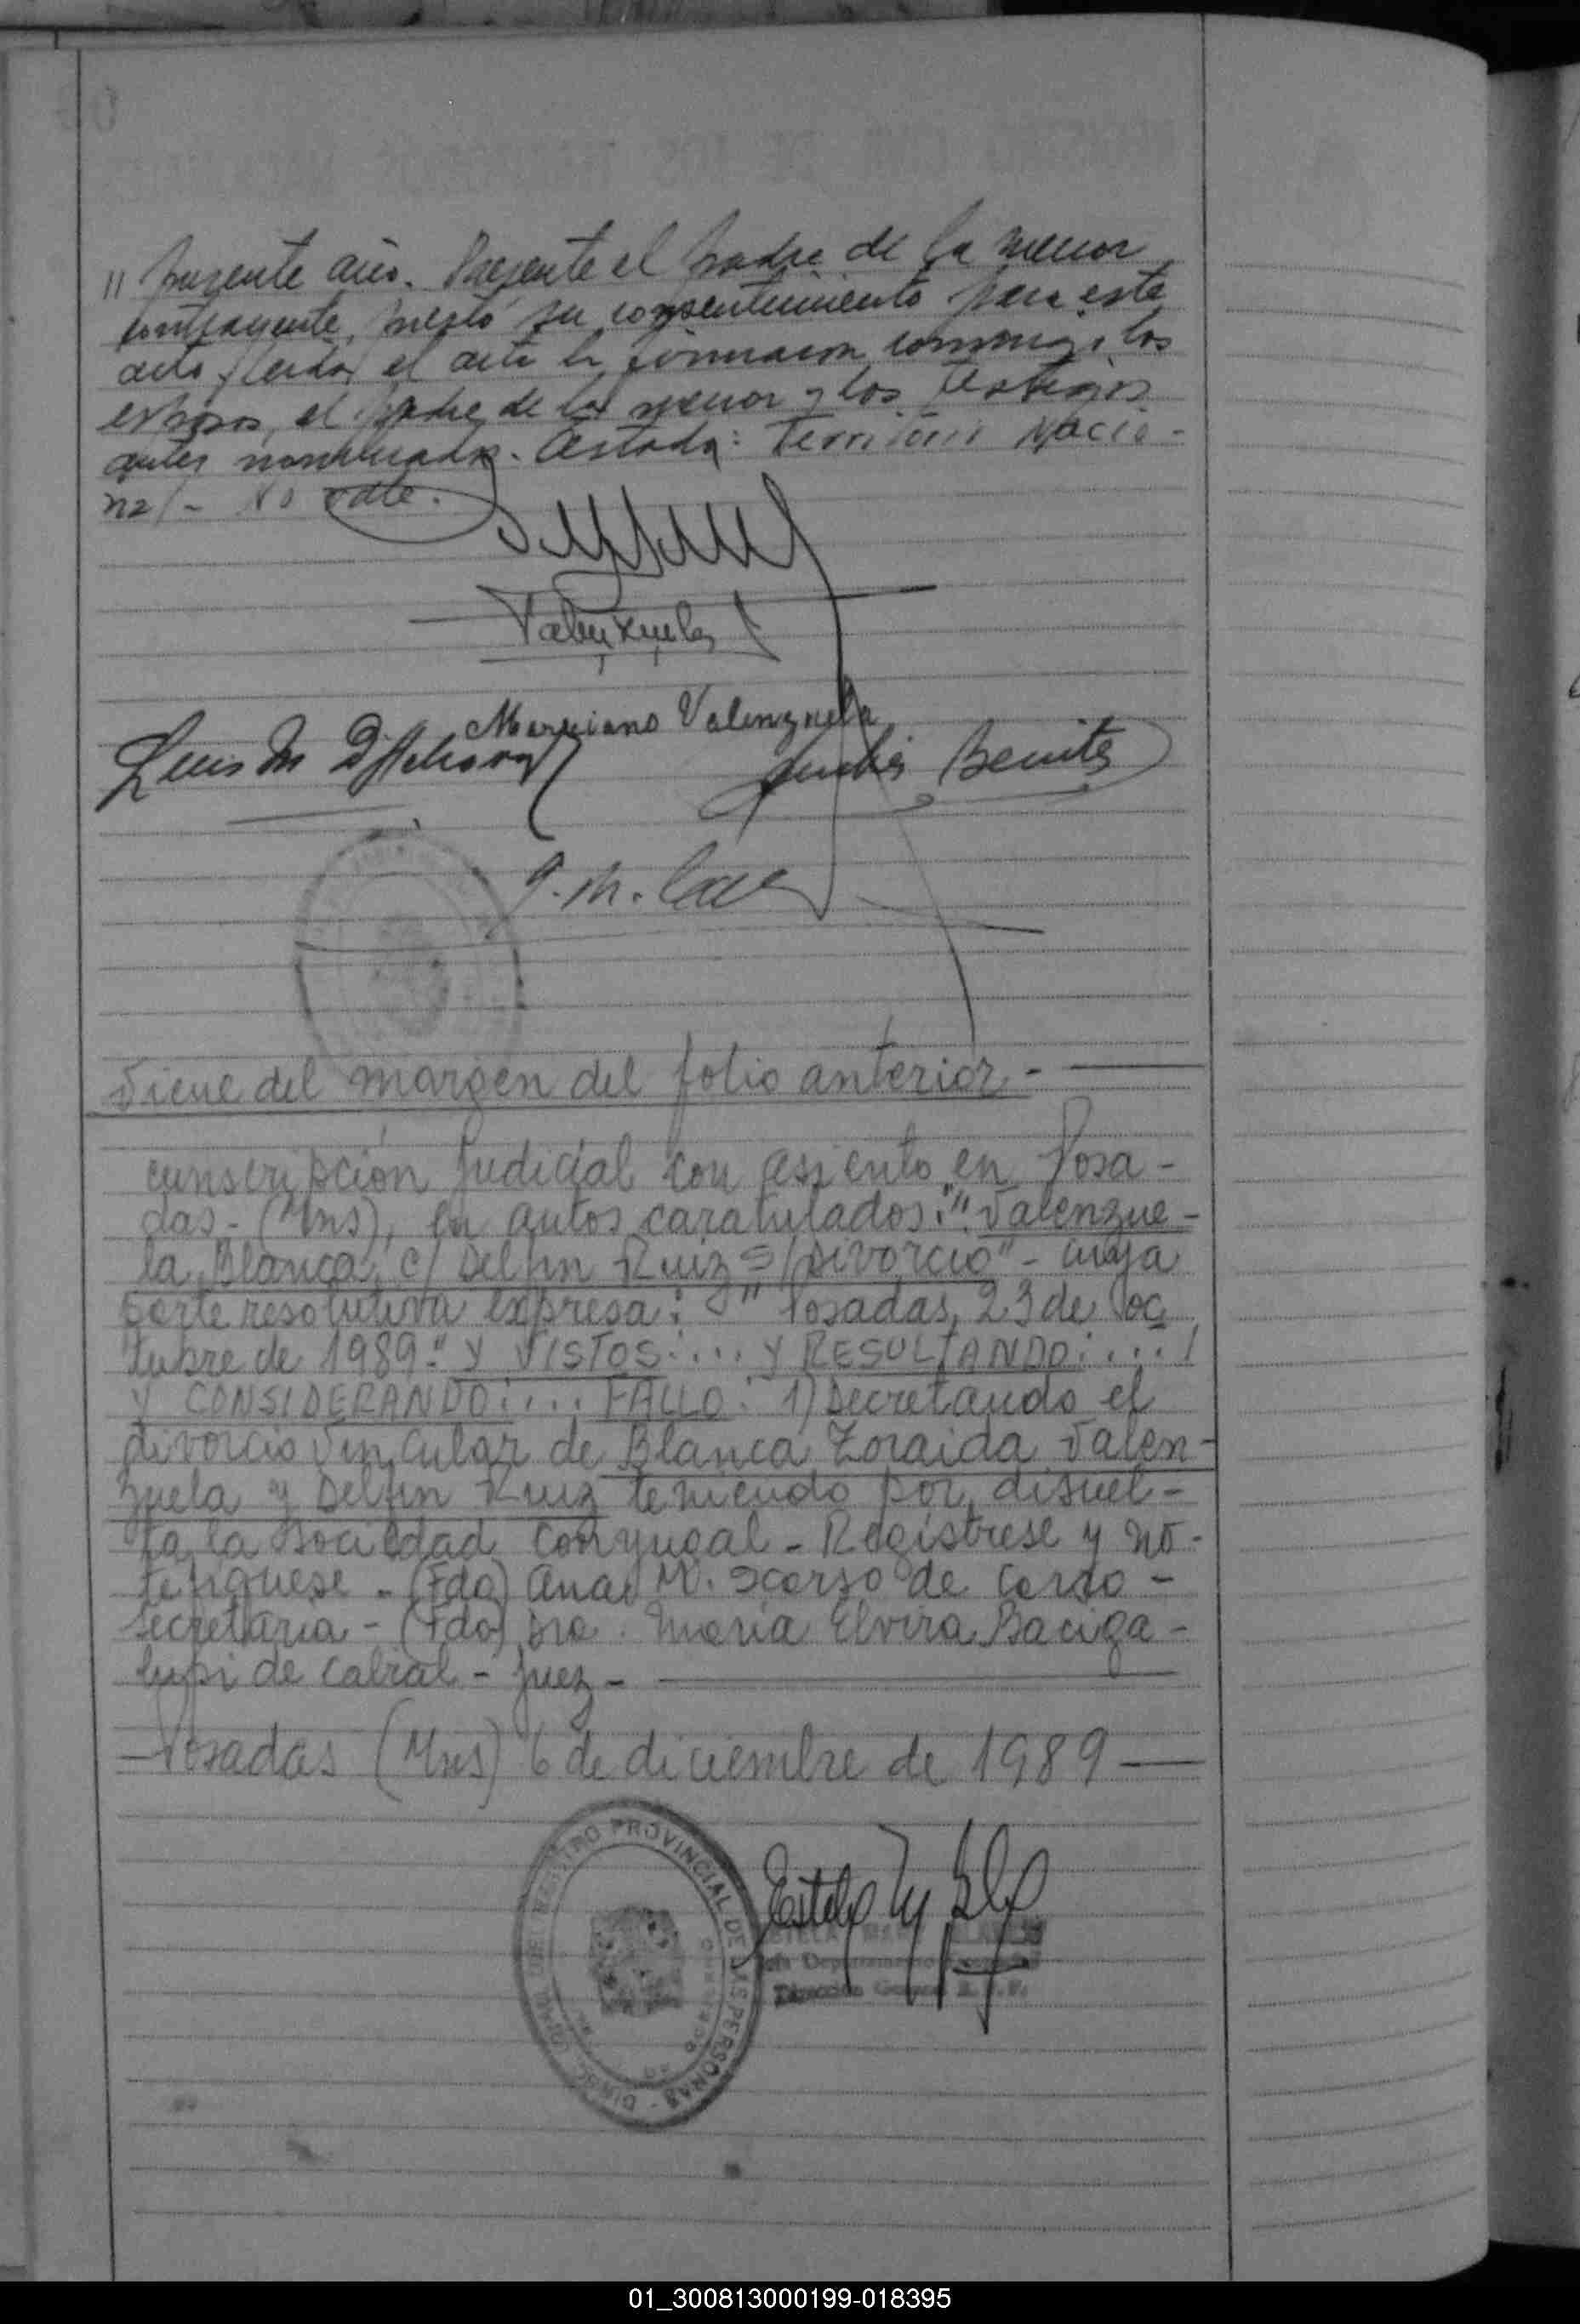 " presente año. Presente el padre de la menor
contrayente, prestó su consentimiento para este
acto, leida el acta la firmaron conmigo, los
esposos, el padre de la menor y los testigos
antes nombrados. Testado: Territorio Nacio-
nal - No vale.
Valenzuela
Marciano Valenzuela
Luis M
Benitez
Viene del margen del folio anterior. -
cunscripción Judicial con asiento en Posa-
das- (Mns), en autos caratulados: "Valenzue-
la Blanca c/ Delfin Ruiz s/Divorcio" - cuya
parte resolutiva expresa: " Posadas, 23 de oc
tubre de 1989." Y VISTOS: .... Y RESULTANDO: .... /
Y CONSIDERANDO: .... FALLO: 1) Decretando el
divorcio vincular de Blanca Zoraida Valen-
zuela y Delfin Ruiz teniendo por disuel-
ta la sociedad conyugal - Registrese y no-
tifiquese - (Fdo) Ana M. Scorso de Corso -
Secretaria - (Fdo) Dra. Maria Elvira Baciga-
lupi de Cabral - Juez -
- Posadas (Mns) 6 de diciembre de 1989 -
REGISTRO PROVINCIAL DE LAS PERSONAS
Departamento
Dirección General
01_300813000199-018395